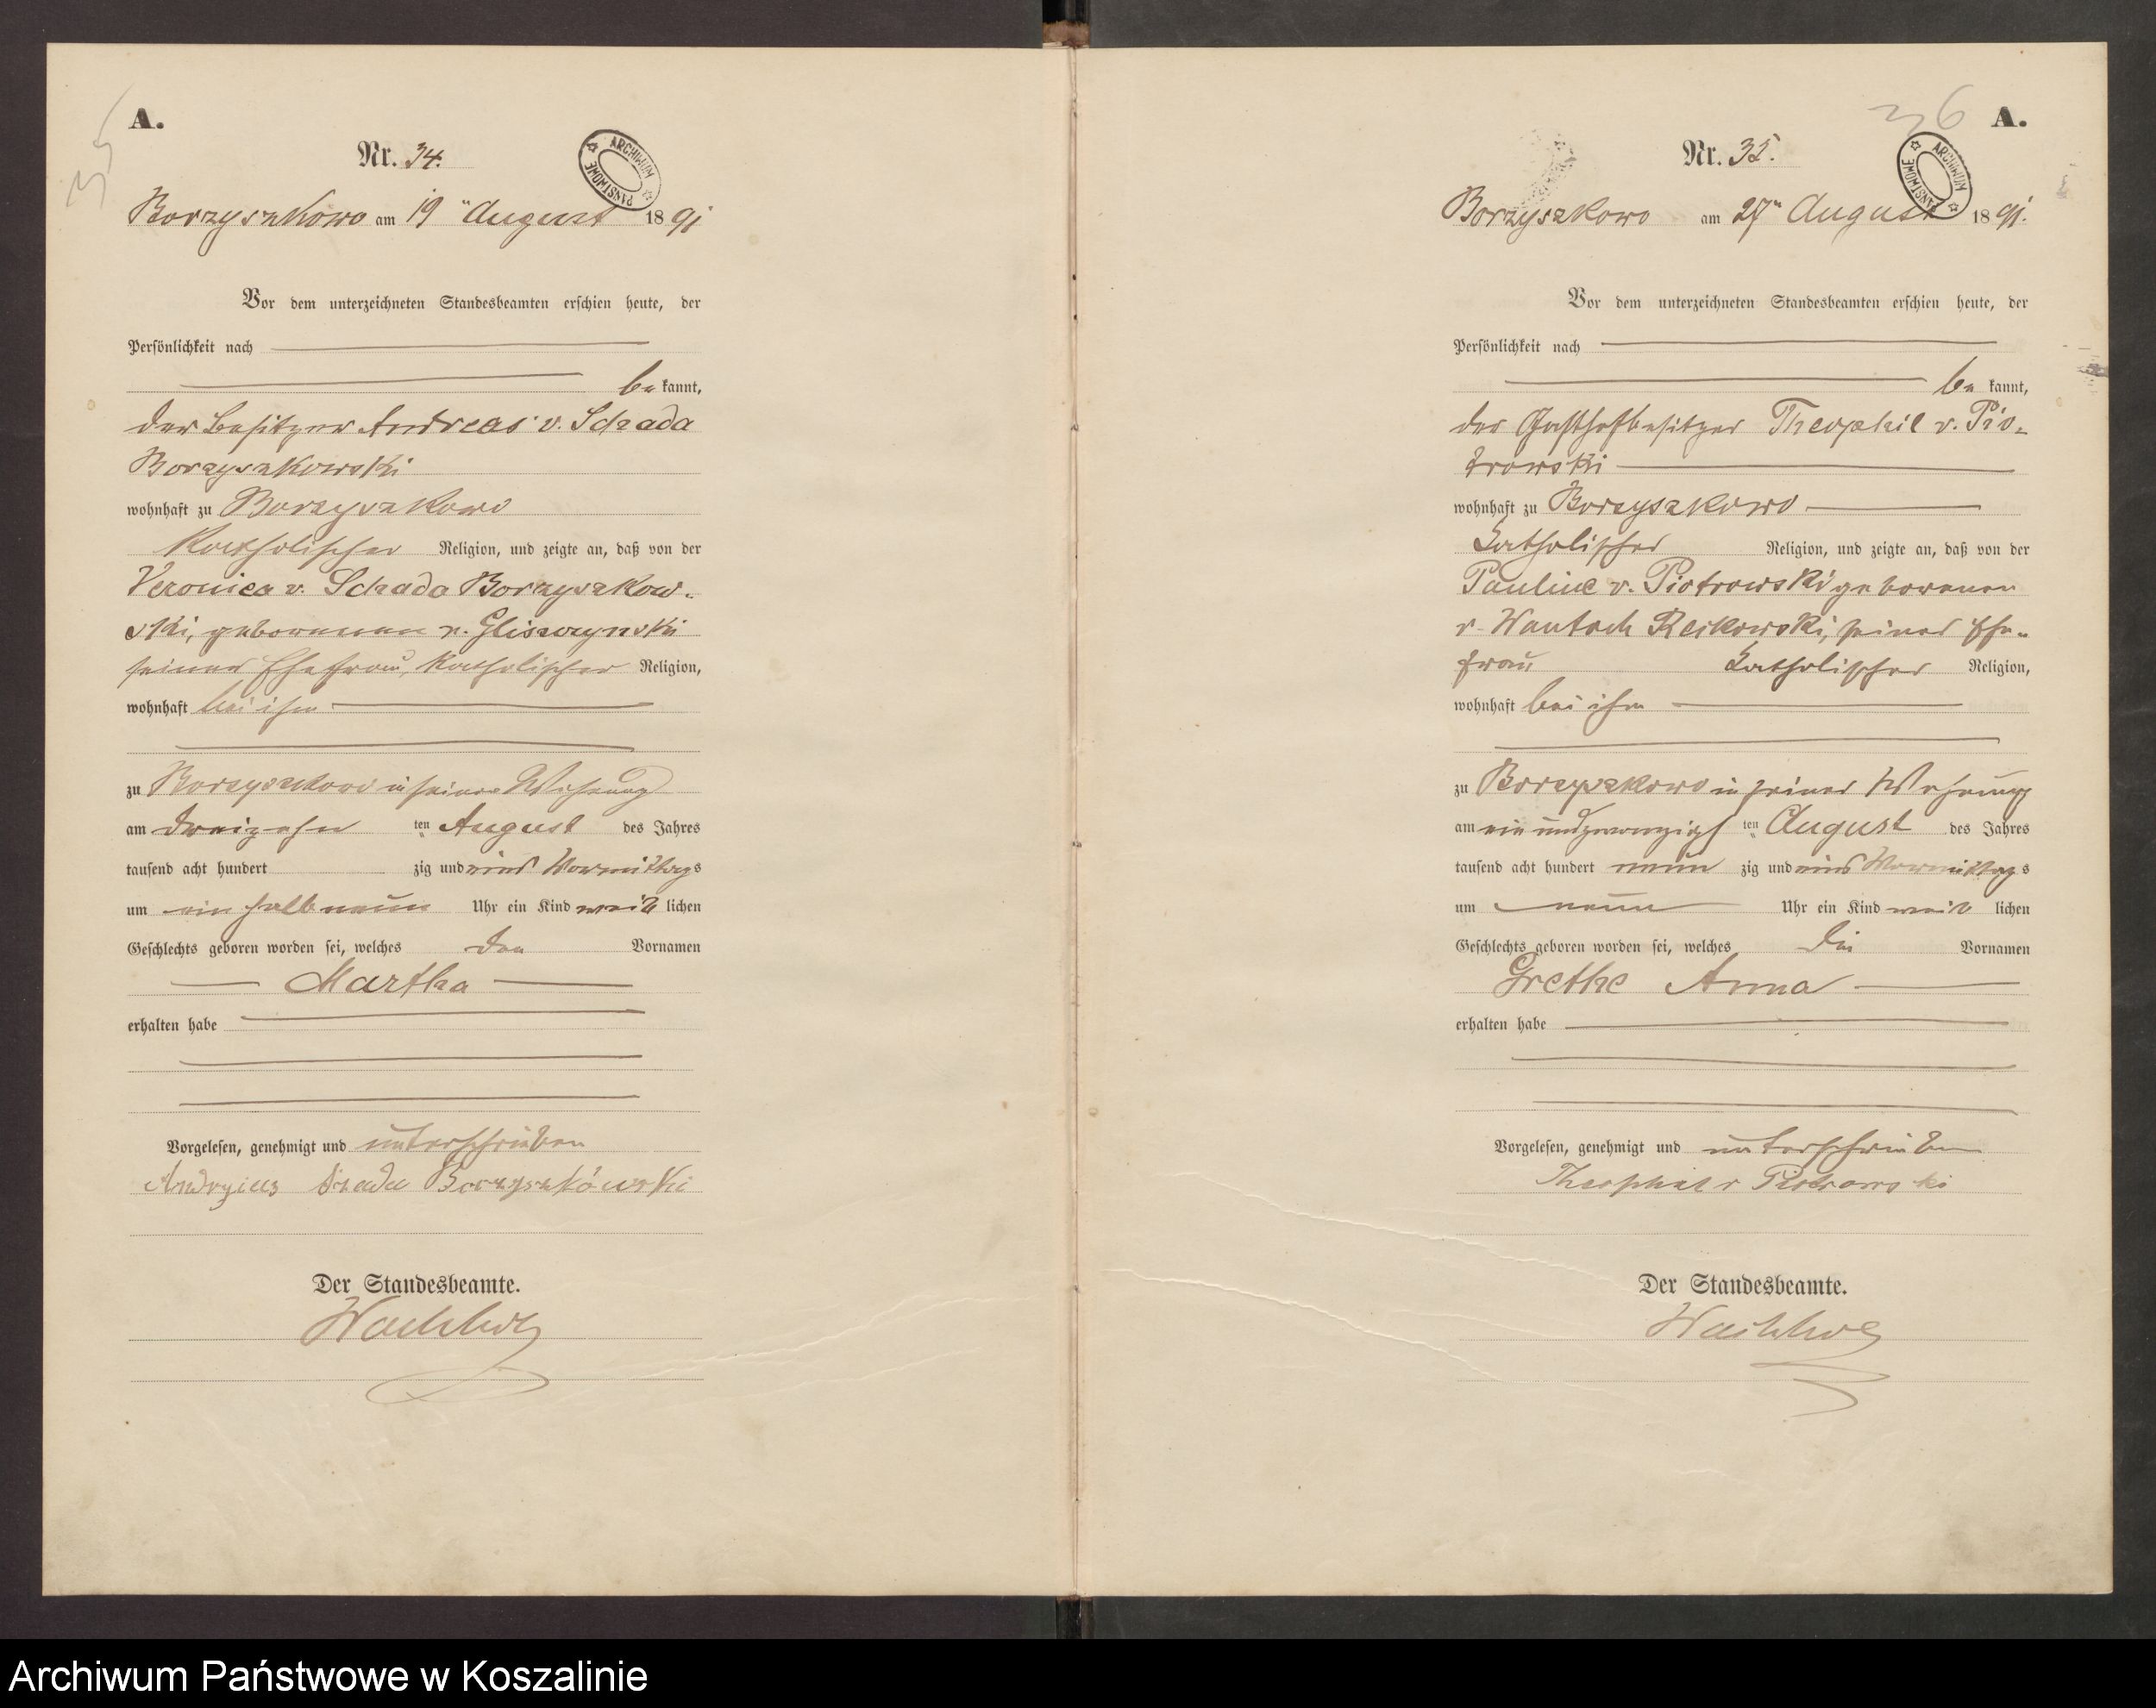 A.
35
Nr. 34.
ARCHIWUM PAŃSTWOWE
Borzyszkowo am 19ten August 1891
Vor dem unterzeichneten Standesbeamten erschien heute, der
Persönlichkeit nach
be kannt,
der Besitzer Andreas v. Schada
Borzyszkowski
wohnhaft zu Borzyszkowo
katholischer Religion, und zeigte an, daß von der
Veronica v. Schada Borzyszkow-
ski, geborenen v. Gliszczynski
seiner Ehefrau, katholischer Religion,
wohnhaft bei ihm
zu Borzyszkowo in seiner Wohnung
am dreizehn ten August des Jahres
tausend acht hundert zig und eins Vormittags
um ein halb neun Uhr ein Kind weib lichen
Geschlechts geboren worden sei, welches den Vornamen
Martha
erhalten habe
Vorgelesen, genehmigt und unterschrieben
Andrzieis Szada Borzyszkówski
Der Standesbeamte.
36
A.
Nr. 35.
ARCHIWUM PAŃSTWOWE
Borzyszkowo am 27ten August 1891.
Vor dem unterzeichneten Standesbeamten erschien heute, der
Persönlichkeit nach
be kannt,
der Gasthofbesitzer Theophil v. Pio-
trowski
wohnhaft zu Borzyszkowo
katholischer Religion, und zeigte an, daß von der
Pauline v. Piotrowski geborenen
v. Wantoch Rekowski, seiner Ehe-
frau katholischer Religion,
wohnhaft bei ihm
zu Borzyszkowo in seiner Wohnung
am ein und zwanzigs ten August des Jahres
tausend acht hundert neun zig und eins Vormittag s
um neun Uhr ein Kind weib lichen
Geschlechts geboren worden sei, welches die Vornamen
Grethe Anna
erhalten habe
Vorgelesen, genehmigt und unterschrieben
Theophil v Piotrowski
Der Standesbeamte.
Archiwum Państwowe w Koszalinie